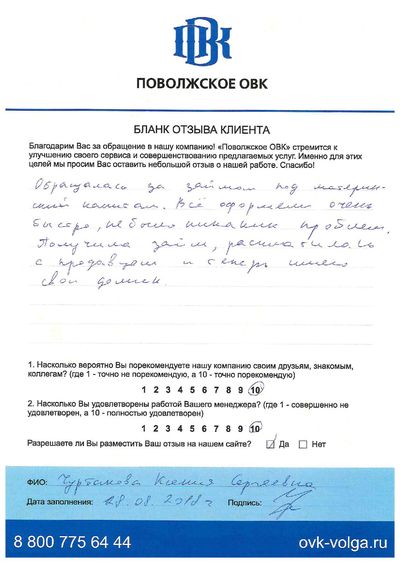 ОВК
ПОВОЛЖСКОЕ ОВК
БЛАНК ОТЗЫВА КЛИЕНТА
Благодарим Вас за обращение в нашу компанию! «Поволжское ОВК» стремится к
улучшению своего сервиса и совершенствованию предлагаемых услуг. Именно для этих
целей мы просим Вас оставить небольшой отзыв о нашей работе. Спасибо!
Обращалась за займом под материн-
ский капитал. Всё оформили очень
быстро, не было никаких проблем.
Получила займ, расплатилась
с продавцом и теперь имею
свой домик.
1. Насколько вероятно Вы порекомендуете нашу компанию своим друзьям, знакомым,
коллегам? (где 1 - точно не порекомендую, а 10 - точно порекомендую)
1 2 3 4 5 6 7 8 9 10
2. Насколько Вы удовлетворены работой Вашего менеджера? (где 1 - совершенно не
удовлетворен, а 10 - полностью удовлетворен)
1 2 3 4 5 6 7 8 9 10
Разрешаете ли Вы разместить Ваш отзыв на нашем сайте? Да Нет
ФИО: Чуртанова Ксения Сергеевна
Дата заполнения: 28.08.2018г Подпись:
8 800 775 64 44 ovk-volga.ru